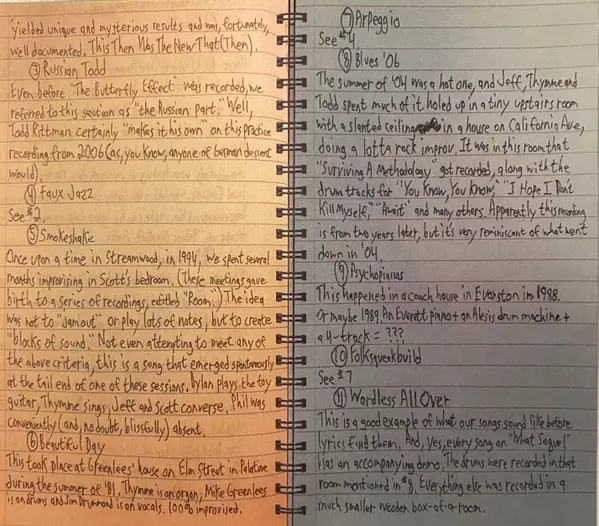 yielded unique and mysterious results and was, fortunately,
well documented. This Then Was The New That (Then).
③ Russian Todd
Even before "The Butterfly Effect" was recorded, we
referred to this section as "the Russian part." Well,
Todd Rittman certainly "makes it his own" on this practice
recording from 2006 (as, you know, anyone of German descent
would).
④ Faux Jazz
See #2.
⑤ Smokeshake
Once upon a time in Streamwood, in 1994, we spent several
months improvising in Scott's bedroom. (These meetings gave
birth to a series of recordings, entitled "Room.") The idea
was not to "jam out" or play lots of notes, but to create
"blocks of sound." Not even attempting to meet any of
the above criteria, this is a song that emerged spontaneously
at the tail end of one of these sessions. Dylan plays the toy
guitar, Thymme sings, Jeff and Scott converse. Phil was
conveniently (and, no doubt, blissfully) absent.
⑥ Beautiful Day
This took place at Greenlees' house on Elm Street in Palatine
during the summer of '81. Thymme is on organ, Mike Greenlees
is on drums and Jim Drummond is on vocals. 100% improvised.
⑦ Arpeggio
See #4.
⑧ Blues '06
The summer of '04 was a hot one, and Jeff, Thymme and
Todd spent much of it holed up in a tiny upstairs room
with a slanted ceiling in a house on California Ave,
doing a lotta rock improv. It was in this room that
"Surviving A Methodology" got recorded, along with the
drum tracks for "You Know, You Know," "I Hope I Don't
Kill Myself," "Await" and many others. Apparently this recording
is from two years later, but it's very reminiscent of what went
down in '04.
⑨ Psychopianos
This happened in a coach house in Evanston in 1988.
Or maybe 1989. An Everett piano + an Alesis drum machine +
a 4-track = ???
⑩ Folksqueakbuild
See #7
⑪ Wordless All Over
This is a good example of what our songs sound like before
lyrics find them. And, yes, every song on "What Segue?"
has an accompanying demo. The drums were recorded in that
room mentioned in #8. Everything else was recorded in a
much smaller wooden box-of-a-room.